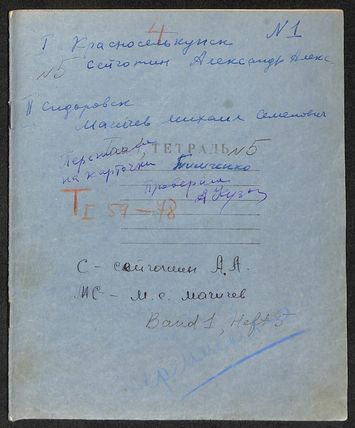 4
N1
I Красноселькупск
N5 Сейготин Александр Алекс
II Сидоровск
Магычев Михаил Семенович
ТЕТРАДЬ N5
на карточки Тимченко
Проверила
А Куз
TI 59-48
С - сейготин А.А.
МС - М.С. Магичев
Band 1, Heft 5